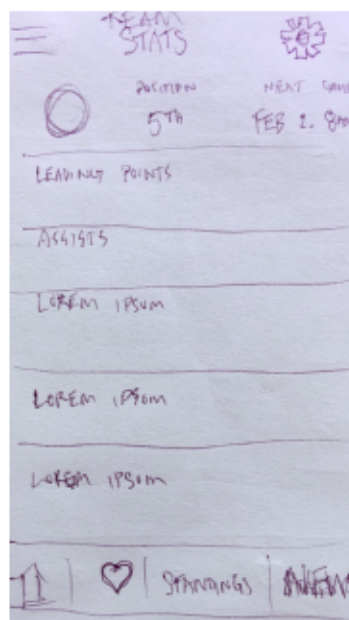 TEAM
STATS
POSITION NEXT GAME
5TH FEB 2. 8AM
LEADING POINTS
ASSISTS
LOREM IPSUM
LOREM IPSUM
LOREM IPSUM
STANDINGS